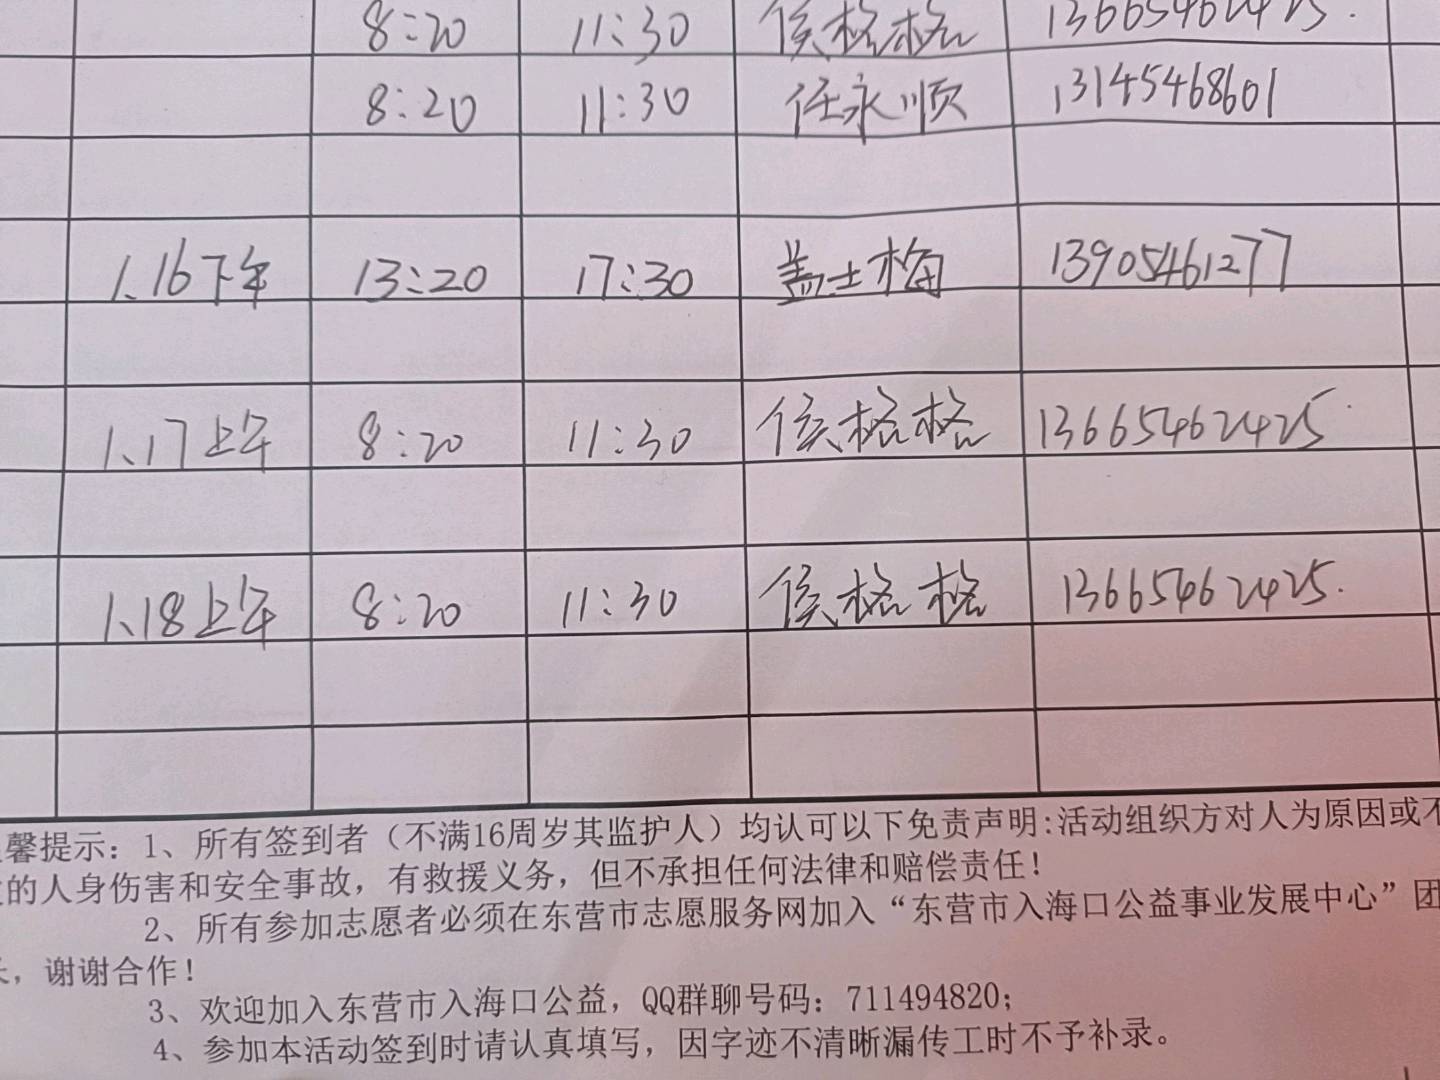 8:20 11:30 侯格格 13665462425.
8:20 11:30 任永顺 13145468601
1.16下午 13:20 17:30 盖士梅 13905461277
1.17上午 8:20 11:30 侯格格 13665462425.
1.18上午 8:20 11:30 侯格格 13665462425.
馨提示：1、所有签到者（不满16周岁其监护人）均认可以下免责声明:活动组织方对人为原因或不
的人身伤害和安全事故，有救援义务，但不承担任何法律和赔偿责任！
2、所有参加志愿者必须在东营市志愿服务网加入“东营市入海口公益事业发展中心”团
，谢谢合作！
3、欢迎加入东营市入海口公益，QQ群聊号码：711494820；
4、参加本活动签到时请认真填写，因字迹不清晰漏传工时不予补录。